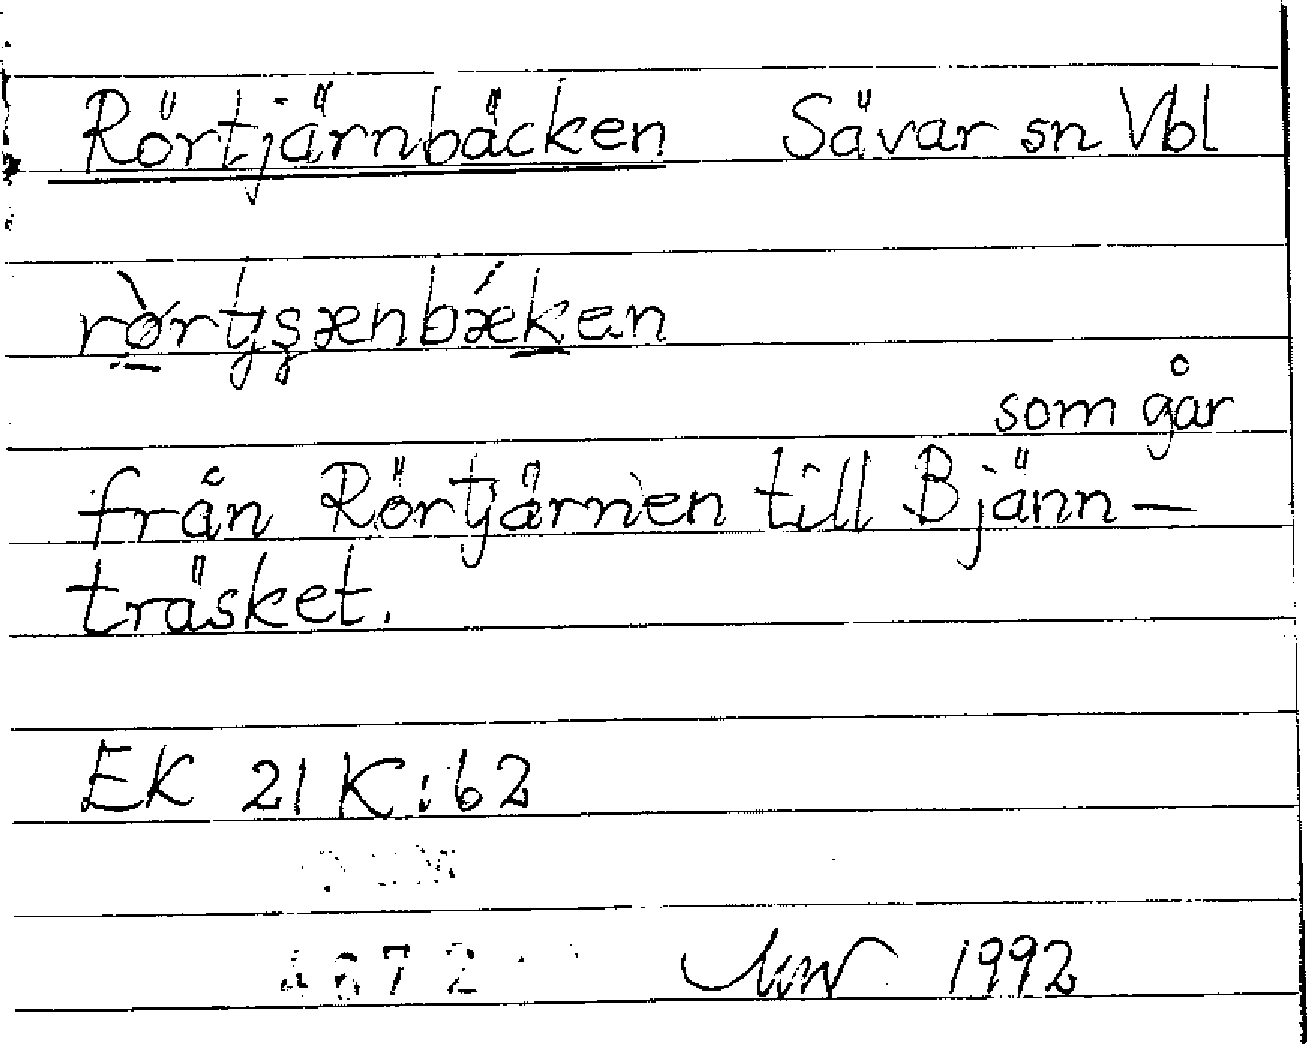 Rörtjärnbäcken Sävar sn Vbl
som går
från Rörtjärnen till Bjänn-
träsket.
EK 21 K:62
1992